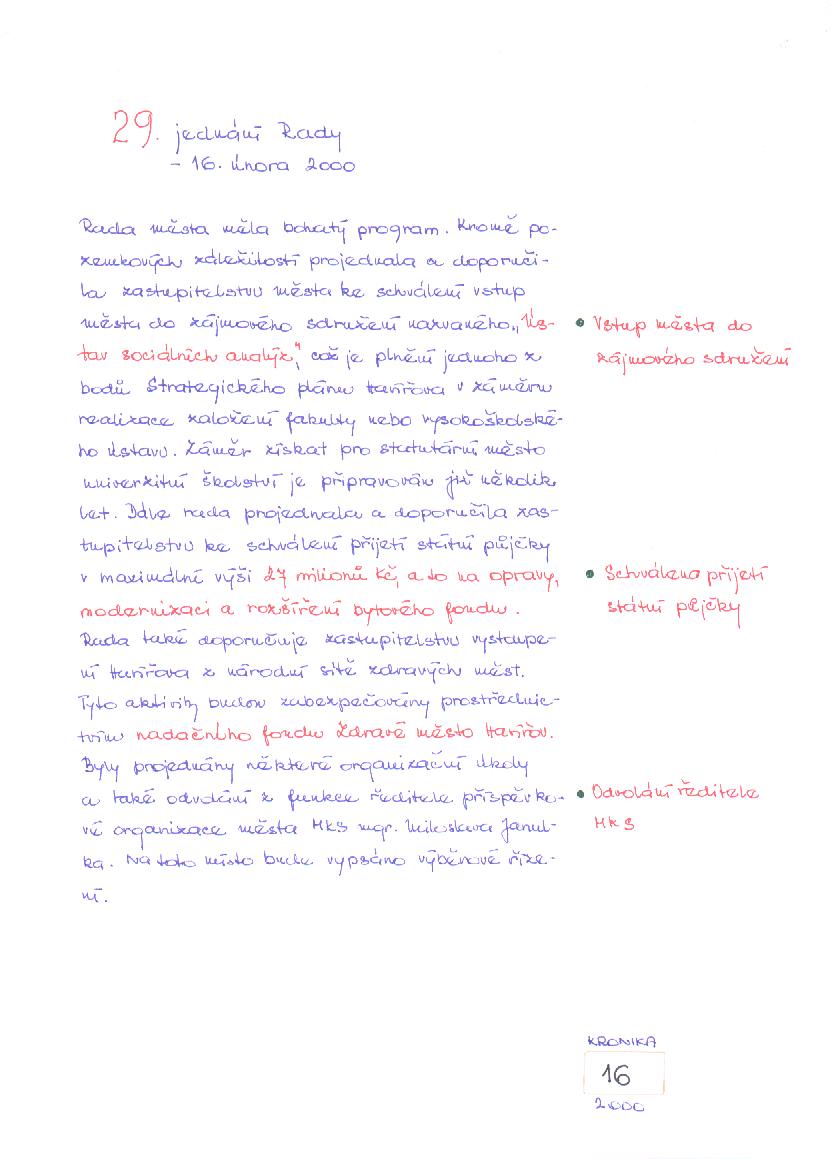 29. jednání Rady
– 16. února 2000
Rada města měla bohatý program. Kromě po-
zemkových záležitostí projednala a doporuči-
la zastupitelstvu města ke schválení vstup
města do zájmového sdružení nazvaného „Ús-
tav sociálních analýz“, což je plnění jednoho z
bodů Strategického plánu Havířova v záměru
realizace založení fakulty nebo vysokoškolské-
ho ústavu. Záměr získat pro statutární město
univerzitní školství je připravován již několik
let. Dále rada projednala a doporučila zas-
tupitelstvu ke schválení přijetí státní půjčky
v maximální výši 27 milionů Kč, a to na opravy,
modernizaci a rozšíření bytového fondu.
Rada také doporučuje zastupitelstvu vystoupe-
ní Havířova z národní sítě zdravých měst.
Tyto aktivity budou zabezpečovány prostřednic-
tvím nadačního fondu Zdravé město Havířov.
Byly projednány některé organizační úkoly
a také odvolání z funkce ředitele příspěvko-
vé organizace města MKS mgr. Miloslava Janul-
ka. Na toto místo bude vypsáno výběrové říze-
ní.
• Vstup města do
zájmového sdružení
• Schválena přijetí
státní půjčky
• Odvolání ředitele
MKS
KRONIKA
16
2000